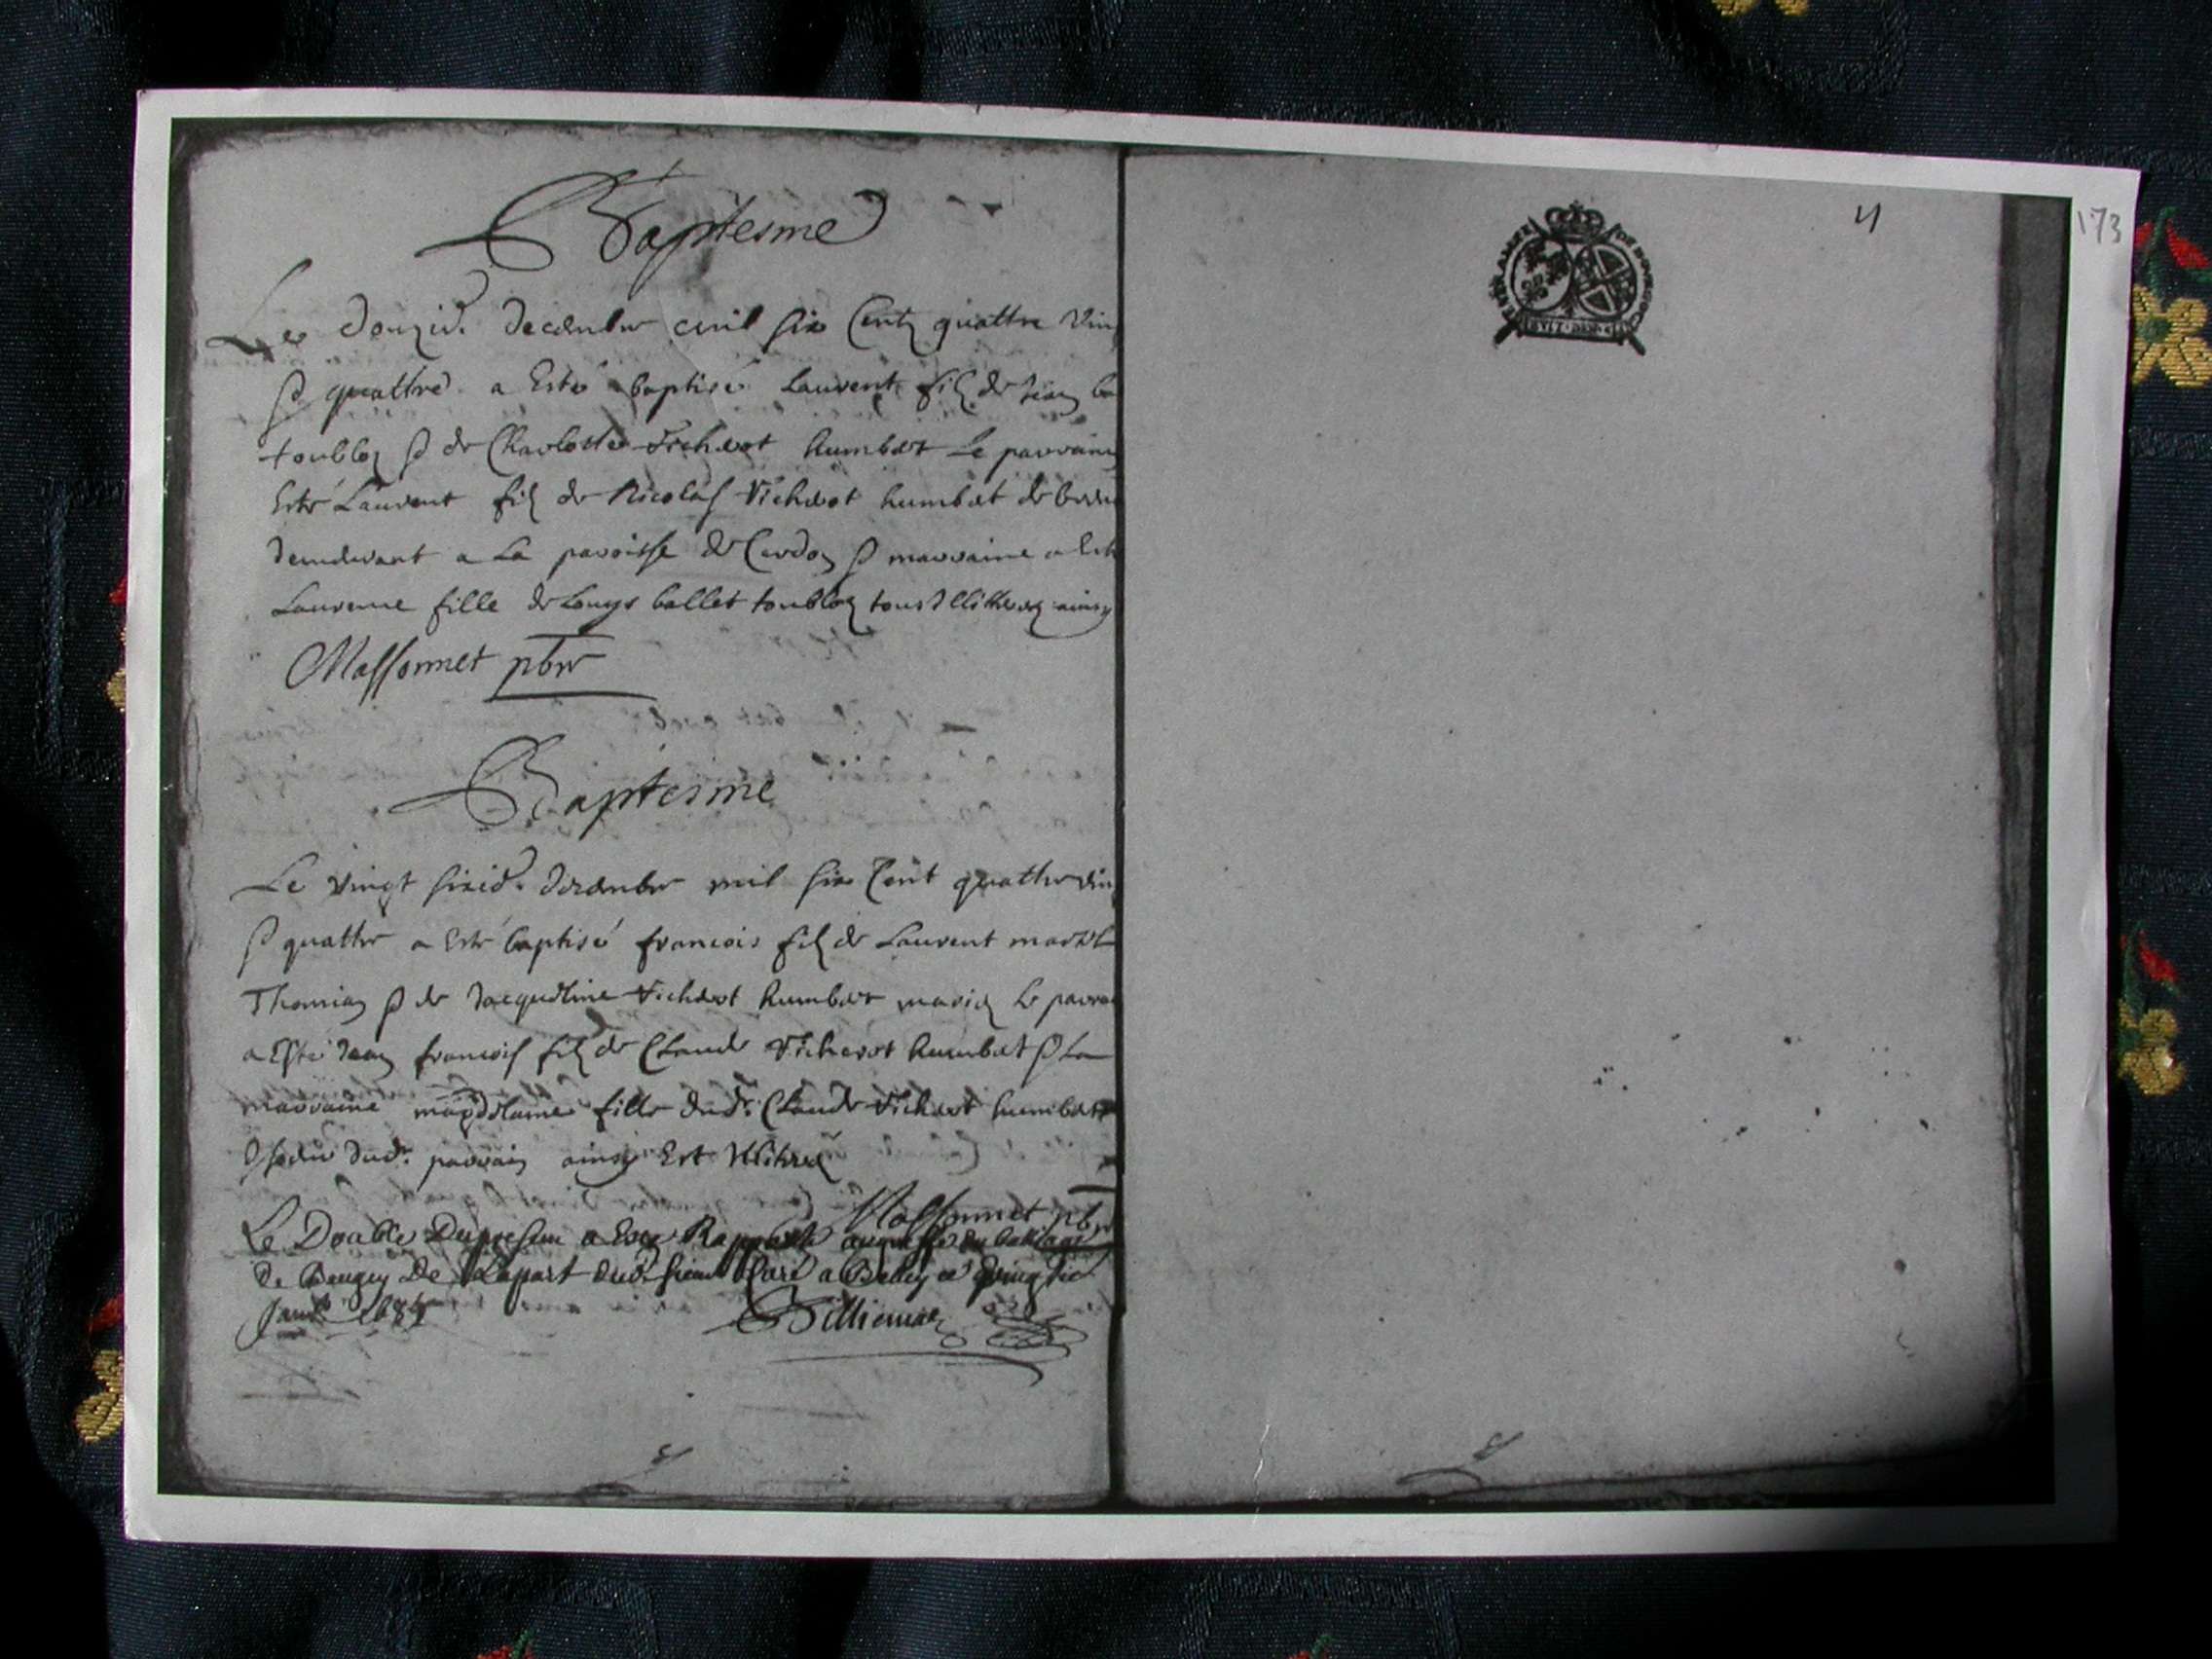 Baptesme
Le douzie. decembre mil six Centz quattre vin
& quattre a Esté baptisé Laurent filz de Jean ba
toublon & de Charlotte Vichard humbert Le parrain
Esté Laurent filz de Nicolas Vichard humbert de
demeurant a La paroisse de Cerdon & marraine a Est
Laurence fille de Louys ballet toublon tous Illitterez ainsy
Massonnet pbre
Baptesme
Le vingt sixie. decembre mil six Cent quattre vin
& quattre a Esté baptisé francois filz de Laurent
Thomas & de Jacqueline Vichard humbert mariez Le parra
a Esté Jean francois filz de Claude Vichard humbert & La
marraine magdelaine fille dudt. Claude Vichard humbert
& dudt. parrain ainsy Est Illitterez
Massonnet pbre
Le Double Du present a Este Rapporté au greffe du bailliage
de Baugey De La part dudt. sieur Curé a Belley ce
Janvr. 1685
4
173